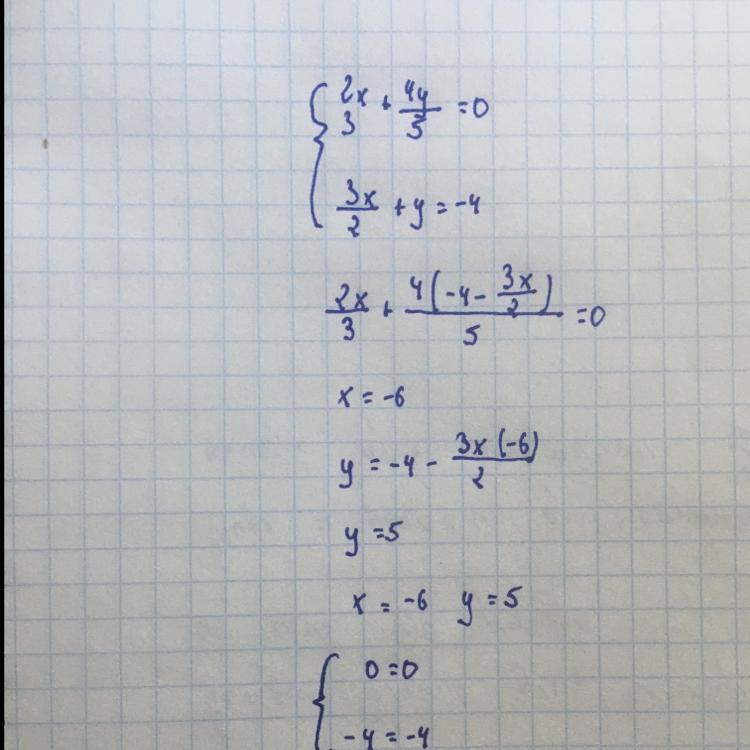 { 2x/3 + 4y/5 = 0
3x/2 + y = -4
2x/3 + 4(-4 - 3x/2)/5 = 0
x = -6
y = -4 - 3x(-6)/2
y = 5
x = -6 y = 5
{ 0 = 0
-4 = -4